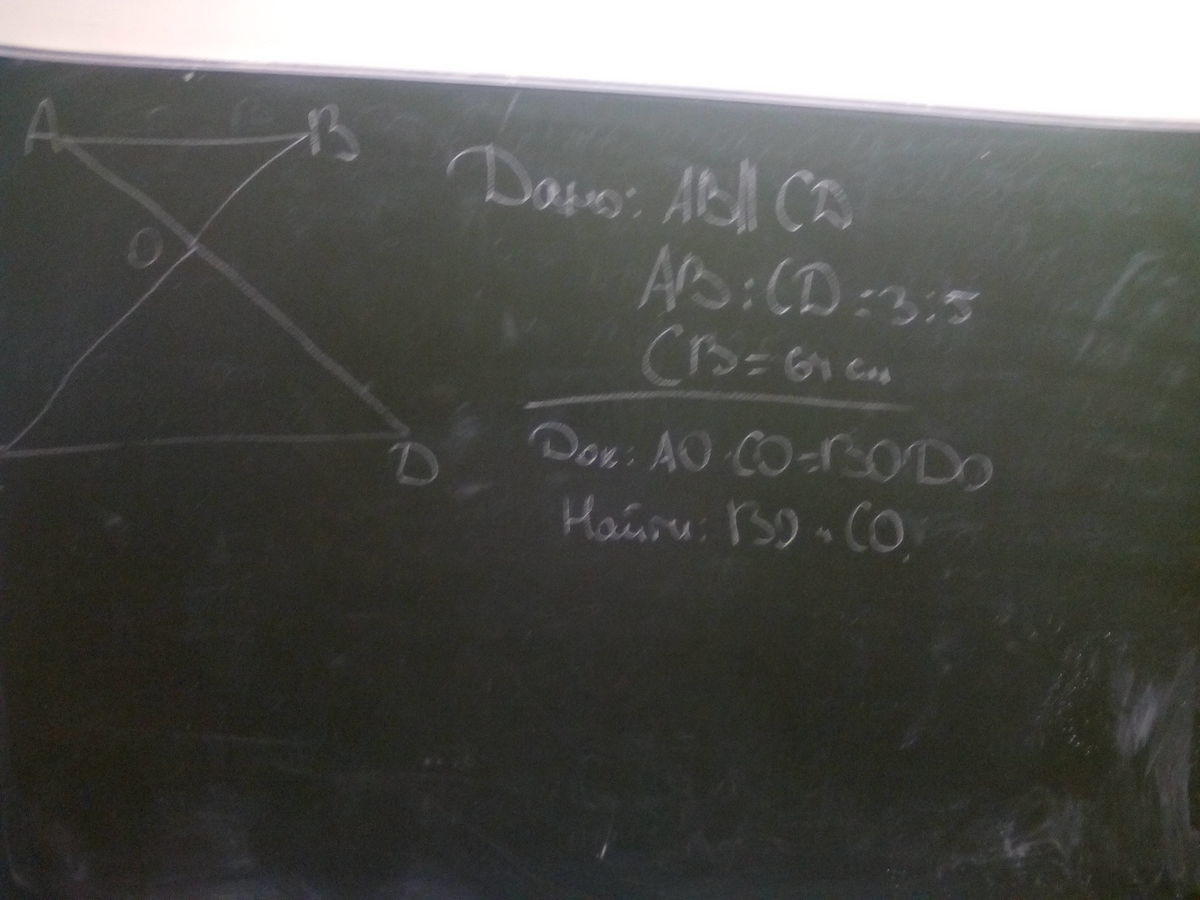 A
B
O
D
Дано: AB || CD
AB : CD = 3 : 5
CB = 64 см
Док: AO · CO = BO · DO
Найти: BO и CO.